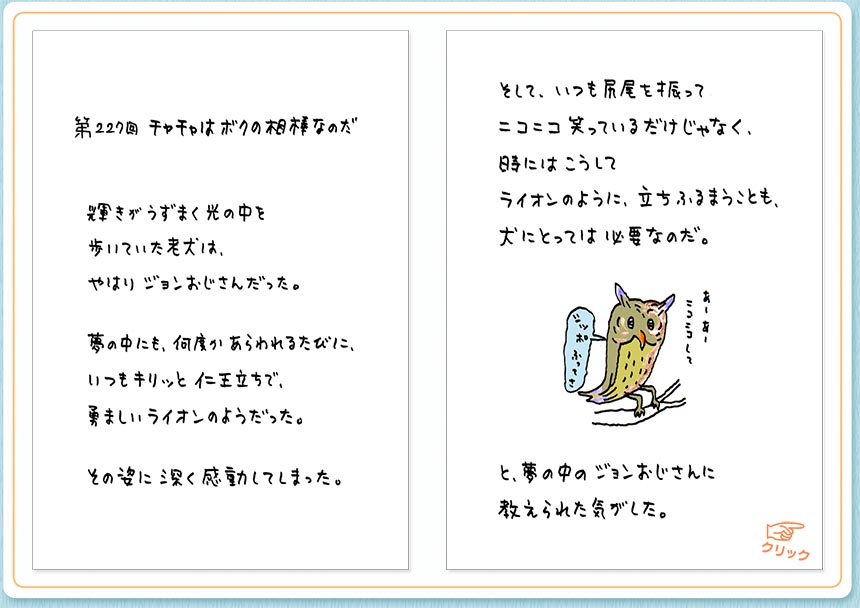 第227回 チャチャはボクの相棒なのだ
輝きがうずまく光の中を
歩いていた老犬は、
やはり ジョンおじさんだった。
夢の中にも、何度かあらわれるたびに、
いつもキリッと 仁王立ちで、
勇ましいライオンのようだった。
その姿に 深く感動してしまった。
そして、いつも尻尾を振って
ニコニコ 笑っているだけじゃなく、
時には こうして
ライオンのように、立ちふるまうことも、
犬にとっては 必要なのだ。
あーあー
ニコニコして
シッポ
ふってさ
と、夢の中の ジョンおじさんに
教えられた気がした。
クリック